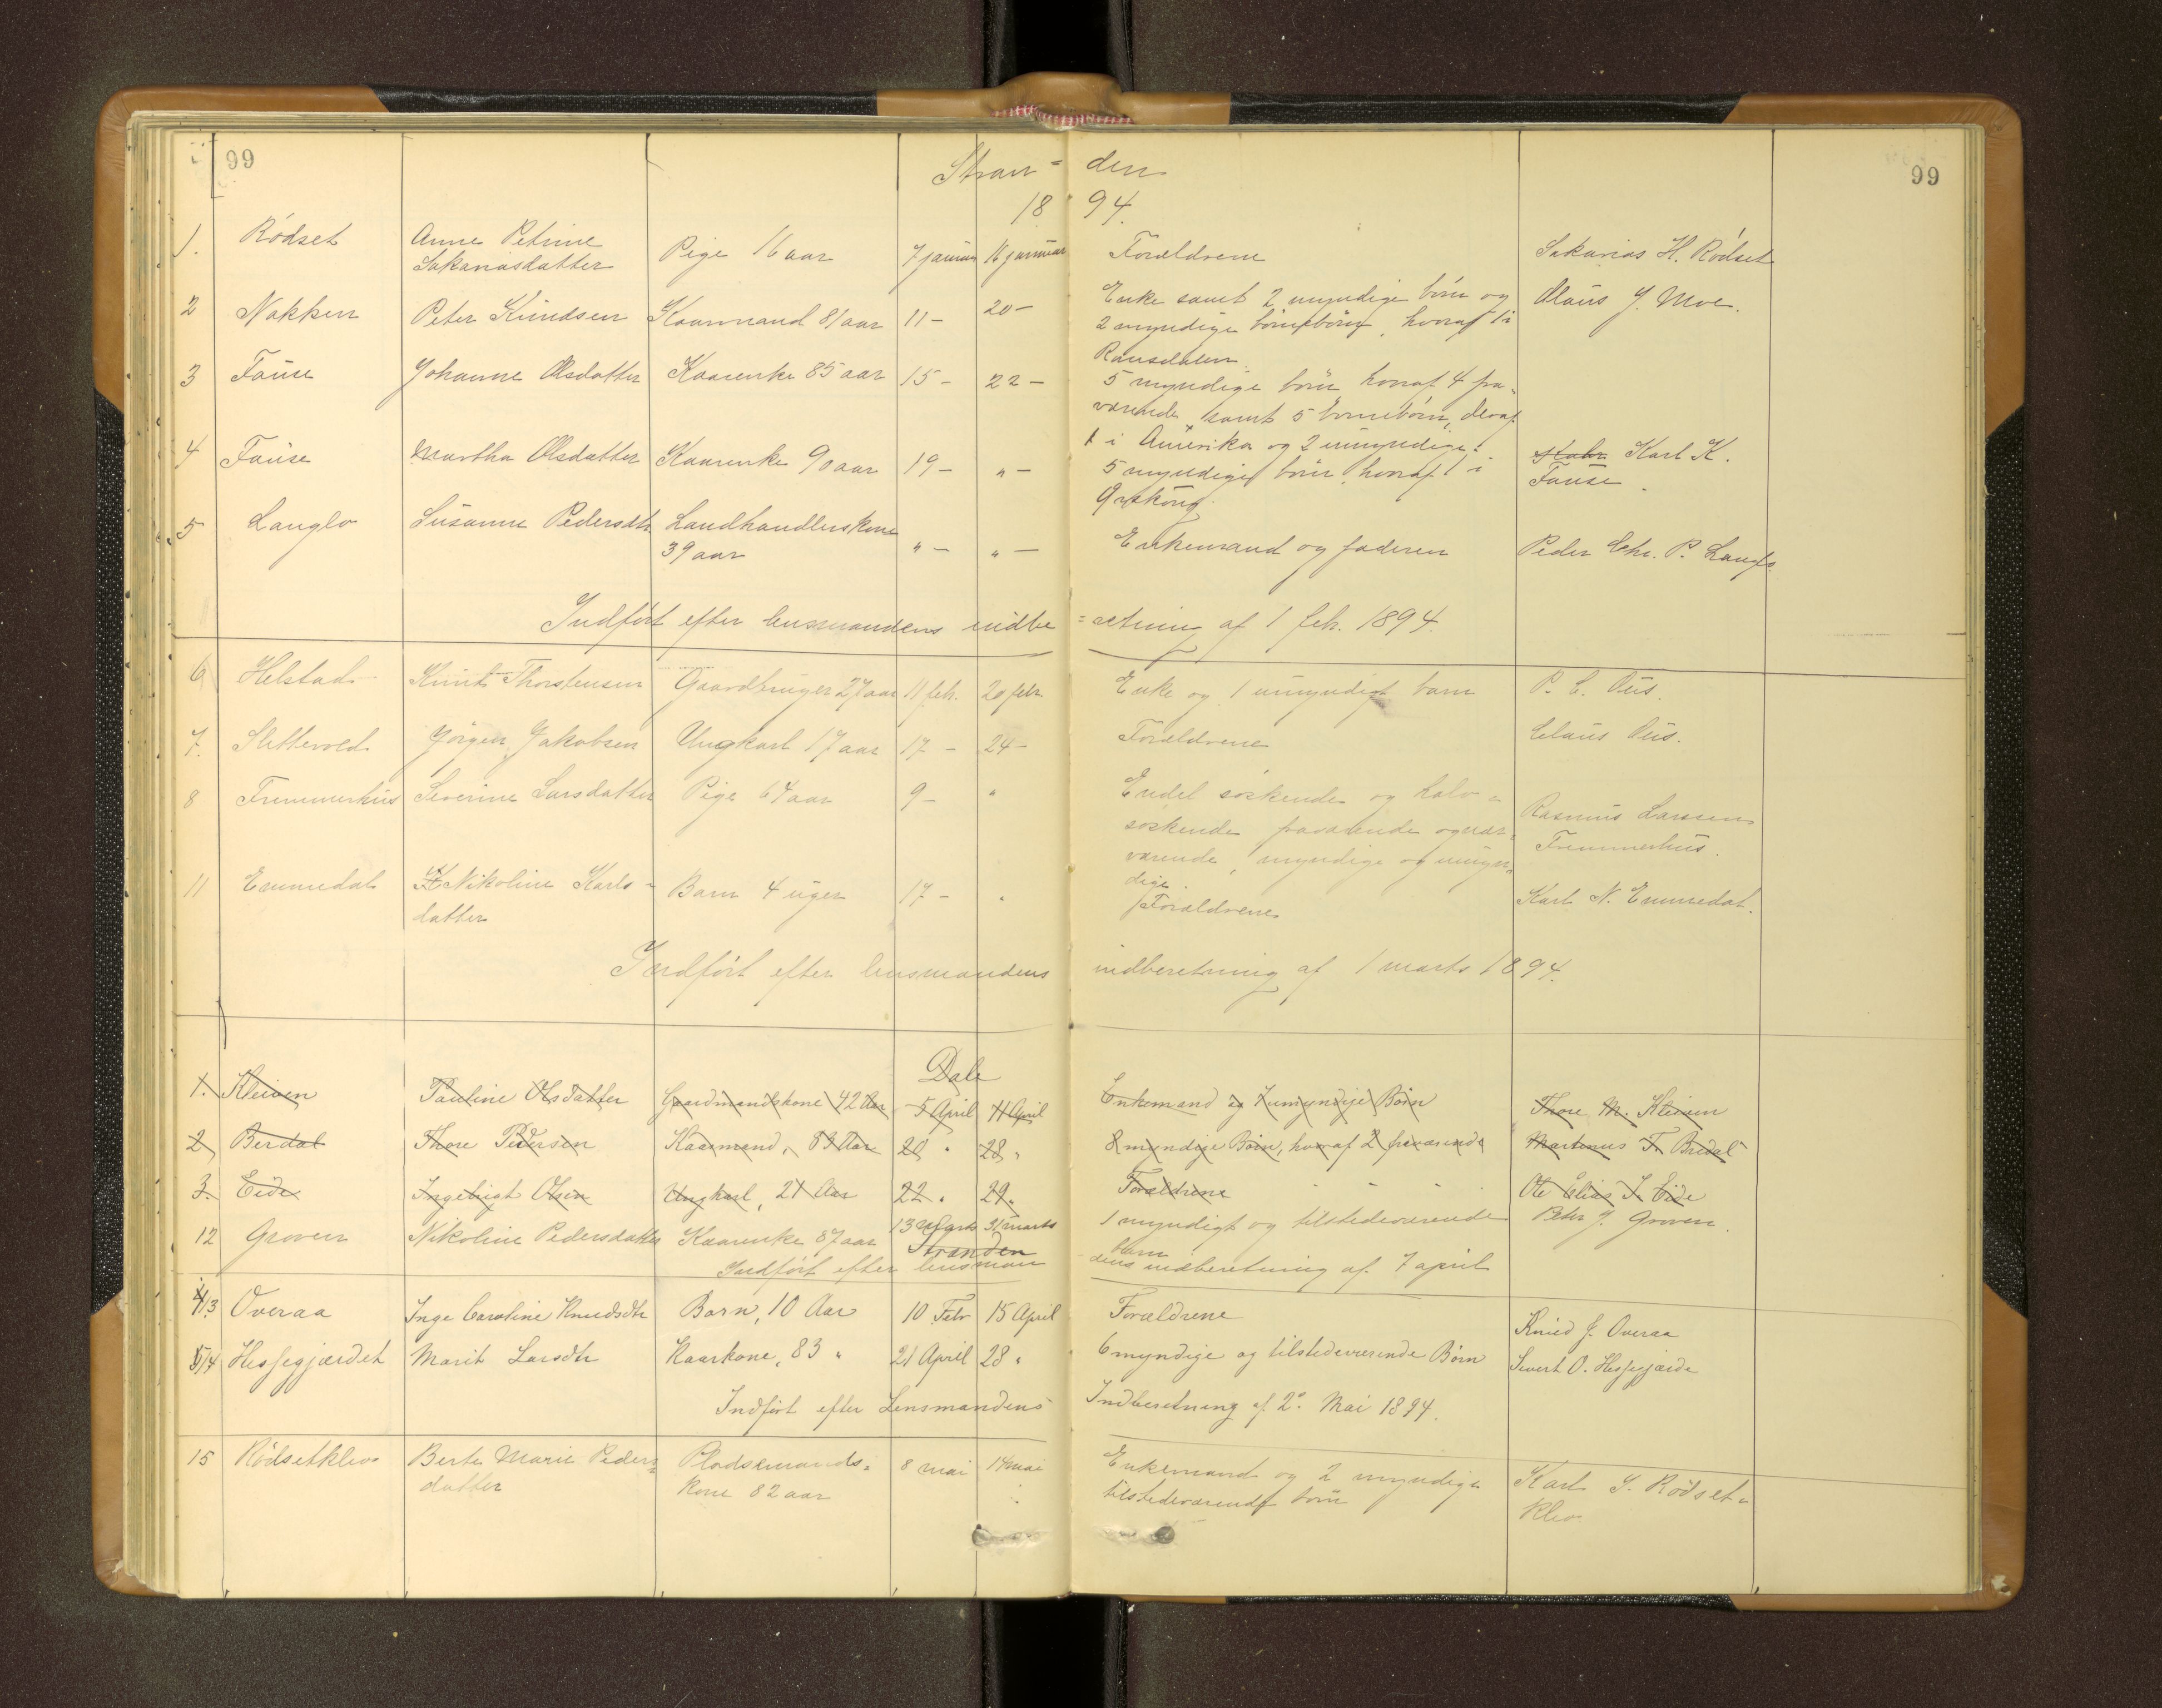 99
99
Stran= den
18 94.
1. Rødset Anne Petrine Sakariasdatter Pige 16 aar 7 januar 16 januar Forældrene Sakarias H. Rødset
2 Nakken Peter Knudsen Kaarmand 81 aar 11 – 20 – Enke samt 2 myndige børn og 2 myndige børnebørn, hvoraf 1 i Romsdalen. Claus J. Moe.
3 Fause Johanne Olsdatter Kaarenke 85 aar 15 – 22 – 5 myndige børn hvoraf 4 fraværende samt 5 børnebørn, deraf 1 i Amerika og 2 umyndige.
4 Fause Martha Olsdatter Kaarenke 90 aar 19 – „ – 5 myndige børn, hvoraf 1 i Ørskoug. Karl K. Fause.
5 Langlo Susanne Pedersdtr. Landhandlerskone 39 aar „ – „ – Enkemand og faderen Peder Chr. P. Langlo
Indført efter lensmandens indbe =retning af 1 feb. 1894.
6 Helstad Knut Thorstensen Gaardbruger 27 aar 11 feb. 20 febr. Enke og 1 umyndigt barn P. C. Øus.
7. Slettevold Jørgen Jakobsen Ungkarl 17 aar 17 – 24 – Forældrene Claus Øus.
8 Fremmerhus Severine Larsdatter Pige 64 aar 9 – „ Endel søskende og halv= søskende fraværende og nær= værende, myndige og umyn= dige. Rasmus Larssen Fremmerhus.
11 Emmedal Nikoline Karls= datter Barn 4 uger 17 – „ Forældrene Karl N. Emmedal.
Indført efter lensmandens indberetning af 1 marts 1894.
Dale
1. Kleiven Pauline Olsdatter Gaardmandskone 42 Aar 5 April 11 April Enkemand og 7 umyndige Børn Thore M. Kleiven
2 Berdal Thore Pedersen Kaarmand, 83 Aar 20 „ 28 „ 8 myndige Børn, hvoraf 2 fraværende Martinus T. Bredal
3. Eide Ingebrigt Olsen Ungkarl, 21 Aar 22 „ 29 „ Forældrene Ole Elias I. Eide
12 Groven Nikoline Pedersdatter Kaarenke 87 aar 13 Marts 31 marts 1 myndigt og tilstedeværende barn Peter J. Groven.
Stranden
Indført efter lensman= dens indberetning af 7 april
13 Overaa Inge Caroline Knudsdtr Barn, 10 Aar 10 Febr 15 April Forældrene Knud J. Overaa
14 Hessegjærdet Marit Larsdtr Kaarkone, 83 „ 21 April 28 „ 6 myndige og tilstedeværende Børn Sivert O. Hessegjærde
Indført efter Lensmandens Indberetning af 2. Mai 1894.
15 Rødsetklev Berte Marie Peders= datter Pladsemands= kone 82 aar 8 mai 14 mai Enkemand og 2 myndige tilstedeværende børn Karl S. Rødset= klev